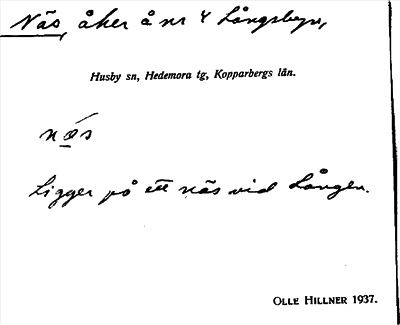 Näs, åker å nr 4 Långsbyn,
Husby sn, Hedemora tg, Kopparbergs län.
næs
Ligger på ett näs vid Lången.
OLLE HILLNER 1937.